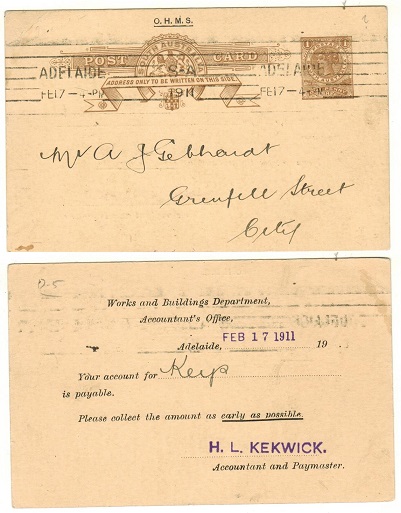 O. H. M. S.
POST CARD
SOUTH AUSTRALIA
ADDRESS ONLY TO BE WRITTEN ON THIS SIDE.
ADELAIDE S-A ADELAIDE
FE17-4-PM 1911 FE17-4-PM
Mr A J Gebhardt
Grenfell Street
City
D-5
Works and Buildings Department,
Accountant's Office,
Adelaide, FEB 17 1911 19
Your account for Keys
is payable.
Please collect the amount as early as possible.
H. L. KEKWICK.
Accountant and Paymaster.